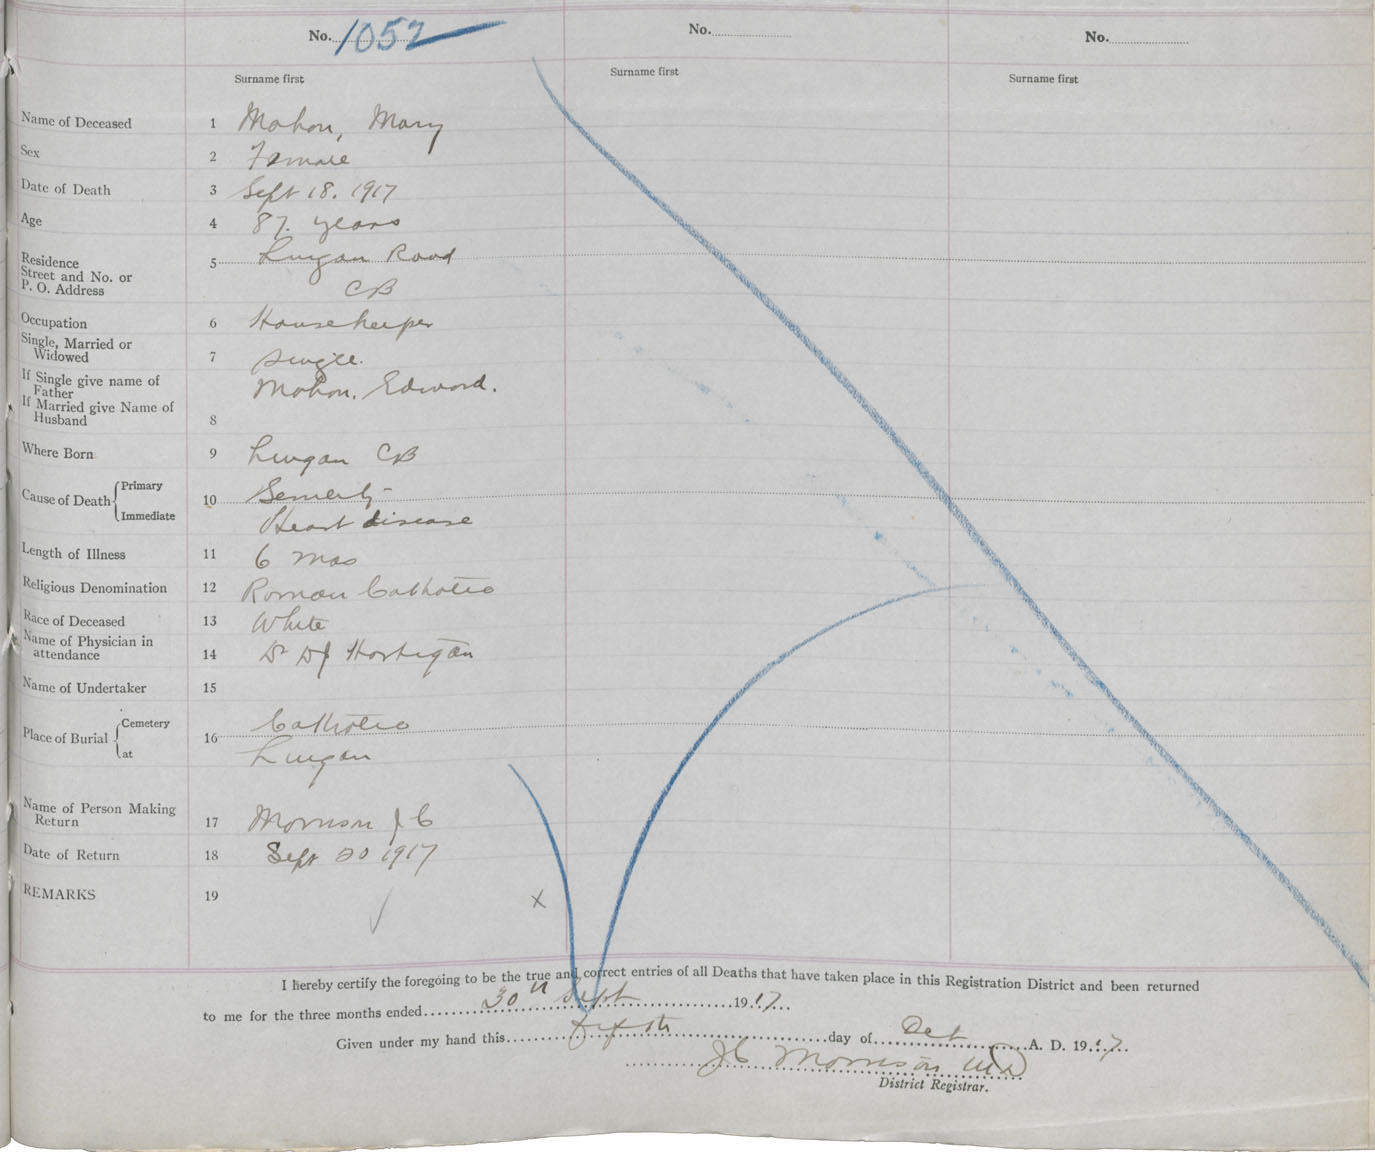 No. 1052
No.
No.
Surname first
Surname first
Surname first
Name of Deceased 1 Mahon, Mary
Sex 2 Female
Date of Death 3 Sept 18. 1917
Age 4 87. years
Residence Street and No. or P. O. Address 5 Lingan Road
CB
Occupation 6 Housekeeper
Single, Married or Widowed 7 Single.
If Single give name of Father Mahon, Edward.
If Married give Name of Husband 8
Where Born 9 Lingan CB
Cause of Death { Primary 10 Senility
Immediate Heart disease
Length of Illness 11 6 mos
Religious Denomination 12 Roman Catholic
Race of Deceased 13 White
Name of Physician in attendance 14 Dr DJ Hartigan
Name of Undertaker 15
Place of Burial { Cemetery 16 Catholic
at Lingan
Name of Person Making Return 17 Morrison J C
Date of Return 18 Sept 20 1917
REMARKS 19
x
I hereby certify the foregoing to be the true and correct entries of all Deaths that have taken place in this Registration District and been returned
to me for the three months ended 30th Sept 1917
Given under my hand this day of Oct A. D. 1917.
JC Morrison MD
District Registrar.